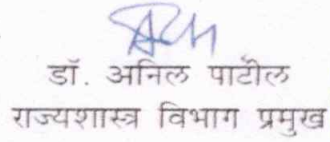 डॉ. अनिल पाटील
राज्यशास्त्र विभाग प्रमुख